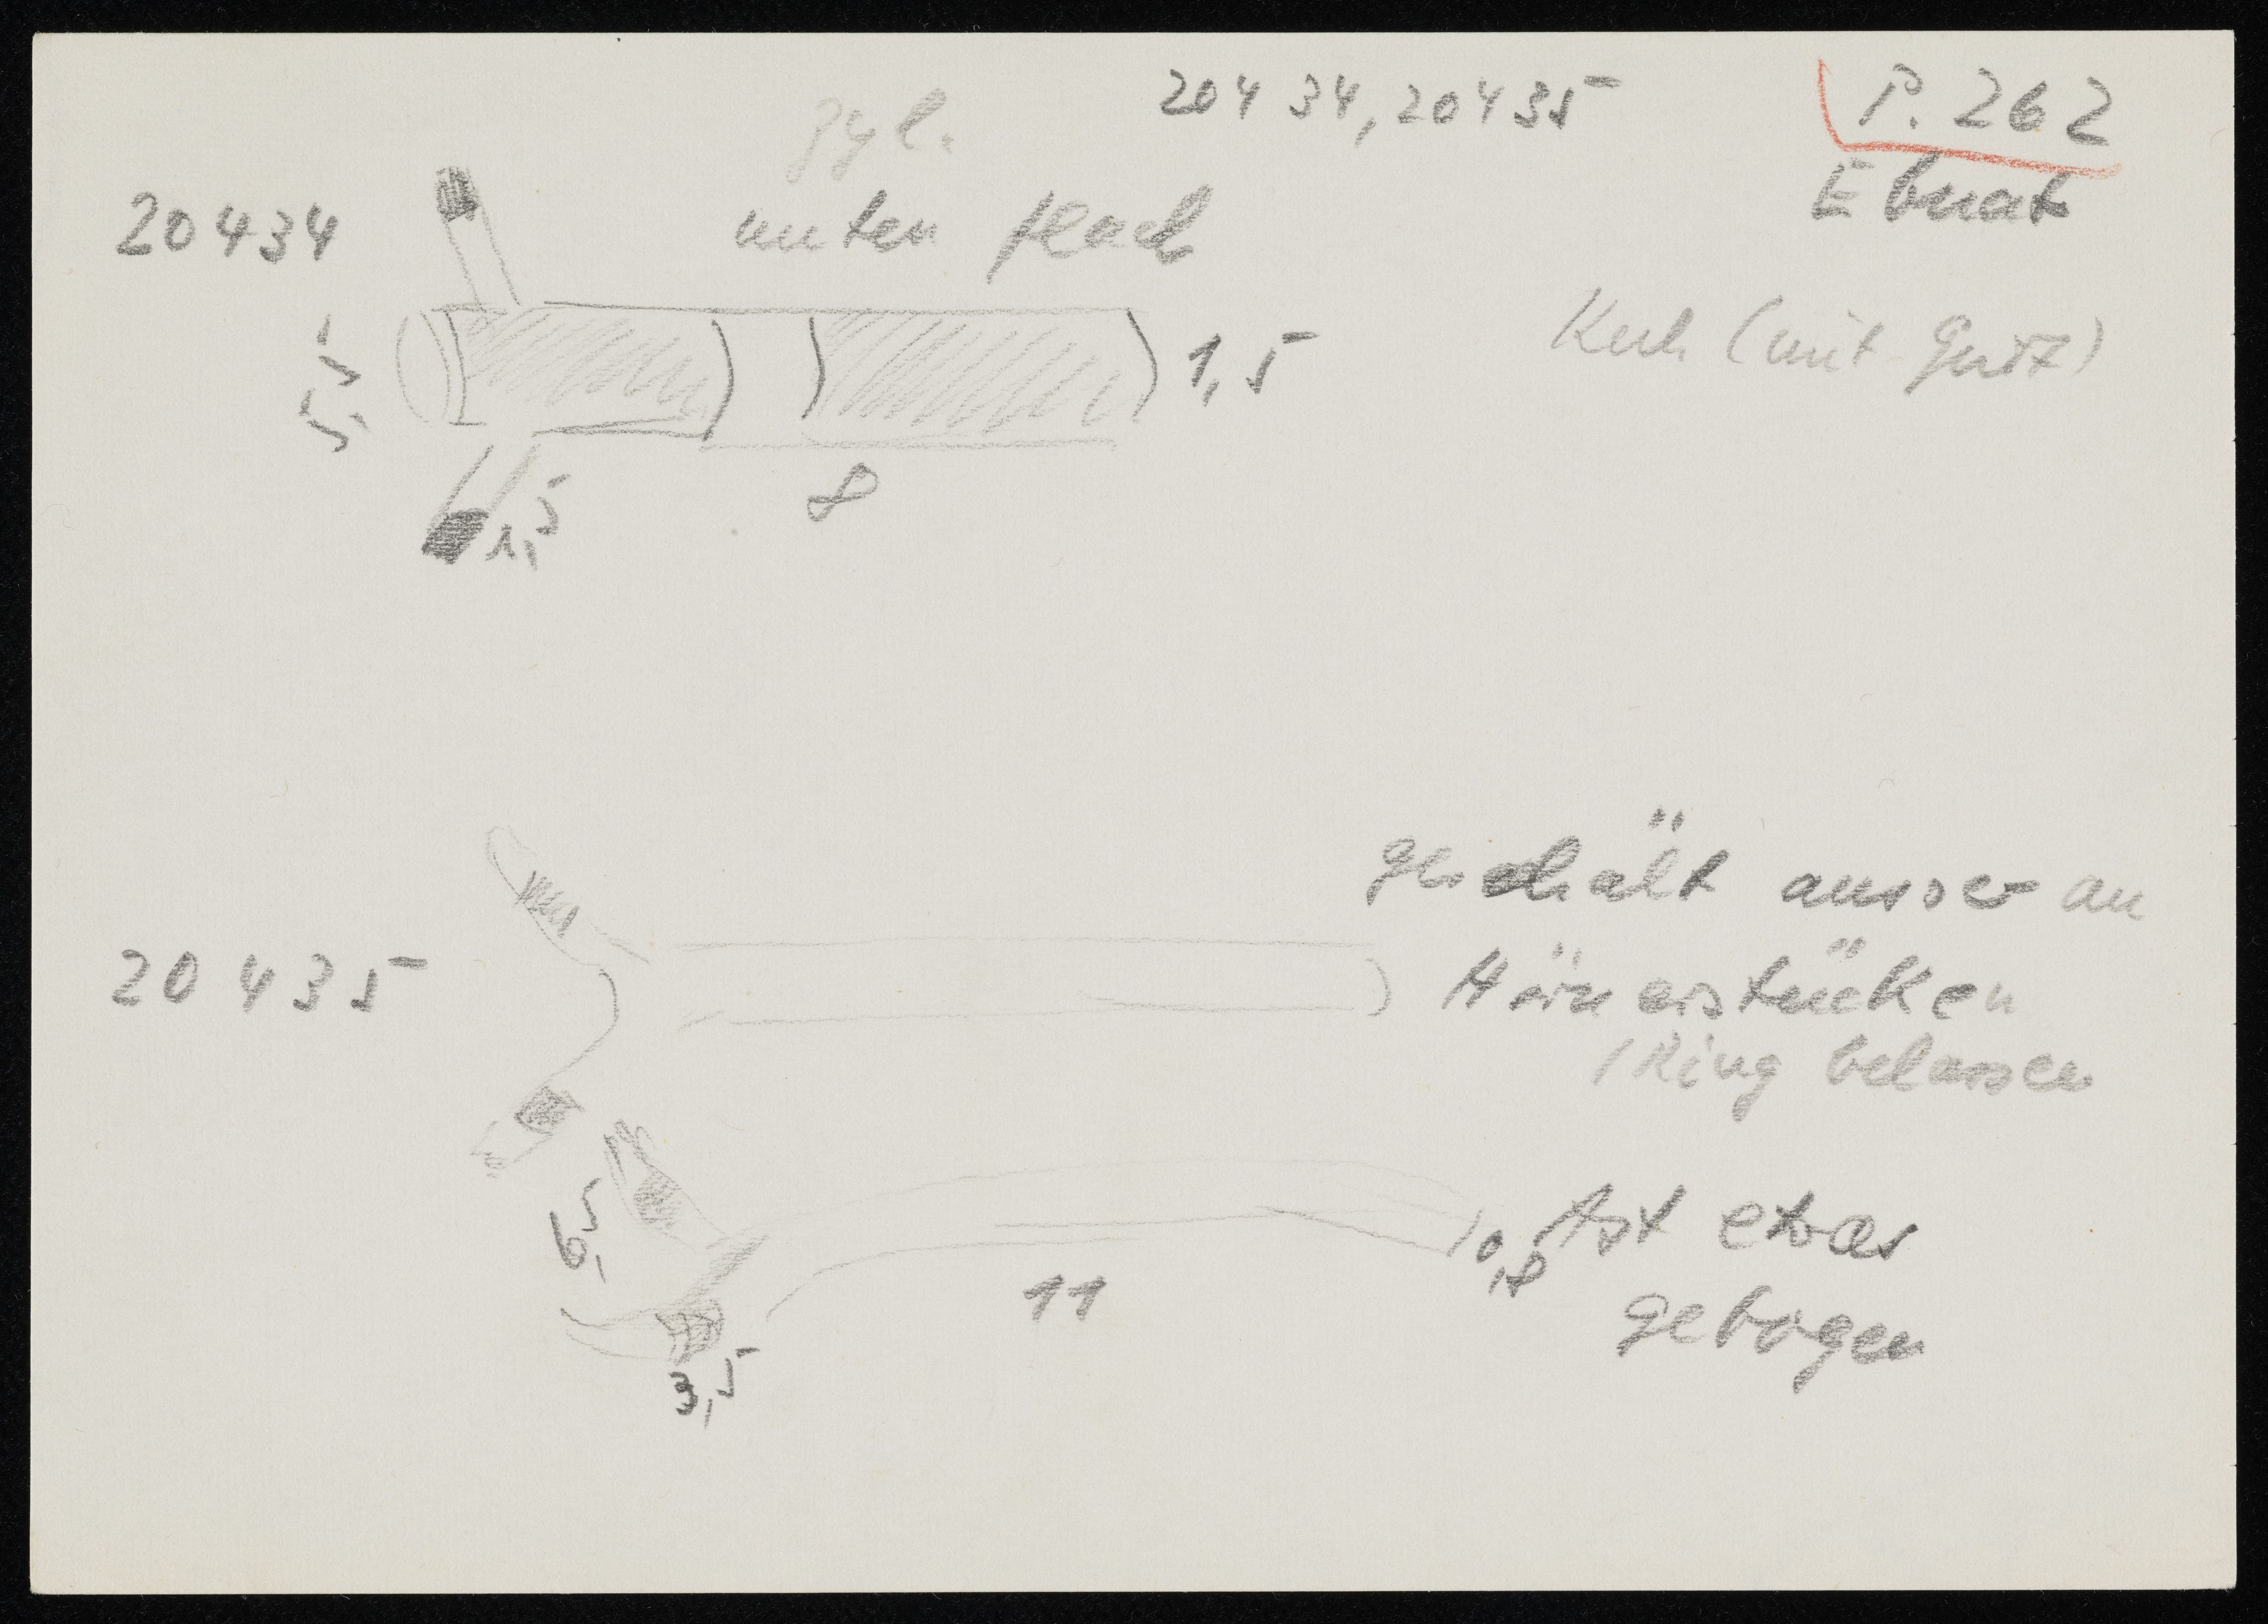 20434, 20435
P. 262
Ebnat
zyl.
unten flach
20434
Kuh (mit
5,5
1,5
8
1,5
geschält ausser an
20435
Hörnerstücken
1 Ring belassen
6,5
Ast etwas
0,8
11
gebogen
3,5